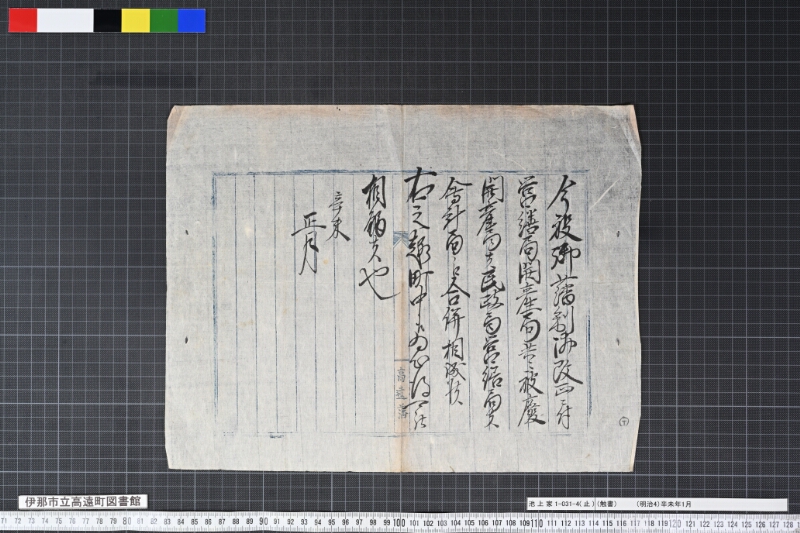 今般御藩制御改正ニ付
営繕局開産局共被廃
開産局者民政局営繕局者
会計局江合併相成候
右之趣町中江為心得
相触候也
辛未
正月
高遠藩
伊那市立高遠町図書館
池上家1-031-4(止)(触書) (明治4)辛未年1月